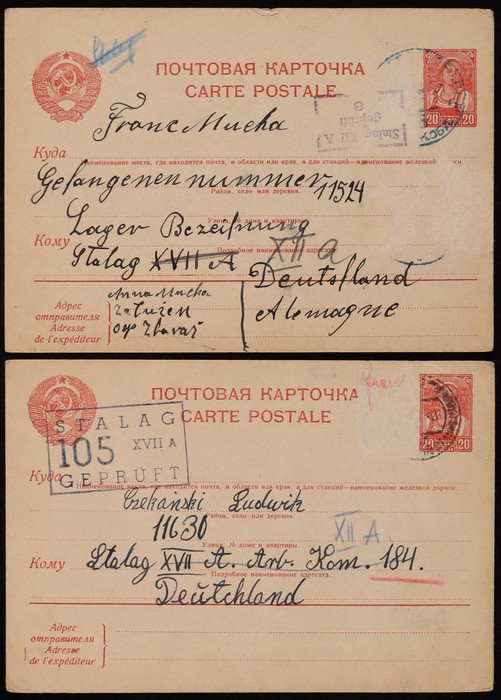 ПОЧТОВАЯ КАРТОЧКА
CARTE POSTALE
20 20
Stalag XII A
geprüft
8
Franc Mucha
Куда
Наименование места, где находится почта, и области или края, а для станций—наименование железной дороги
Gefangenennummer 11524
Район, село или деревня.
Lager Bezeifnung
Улица, № дома и квартиры
Кому
Подробное наименование адресата
Stalag XVII A XII a
Deutsfland
Alemagne
Адрес
отправителя
Adresse
de l'expéditeur
Anna Mucha
ПОЧТОВАЯ КАРТОЧКА
CARTE POSTALE
20 20
STALAG
105 XVII A
GEPRÜFT
Куда
Наименование места, где находится почта, и области или края, а для станций—наименование железной дороги.
Czekański Ludwik
Район, село или деревня.
11630
Улица, № дома и квартиры.
XII A.
Кому Stalag XVII A. Arb. Kom. 184.
Подробное наименование адресата.
Deutchland
Адрес
отправителя
Adresse
de l'expéditeur